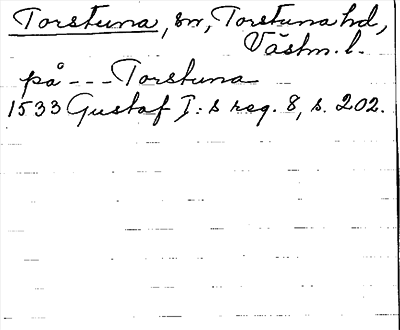 Torstuna, sn, Torstuna hd,
Västm. l.
på --- Torstuna
1533 Gustaf I:s reg. 8, s. 202.